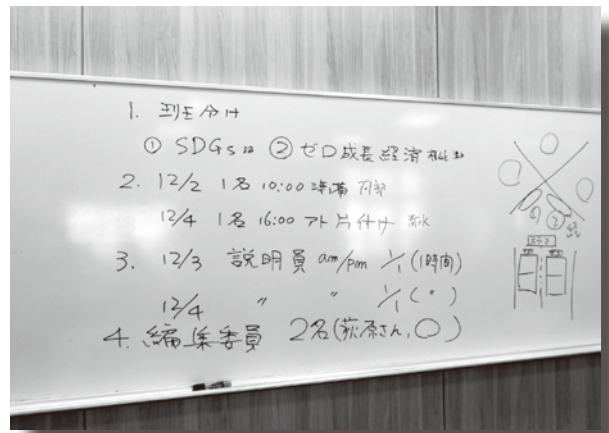 1. 班分け
① SDGs ② ゼロ成長経済
2. 12/2 1名 10:00 準備
12/4 1名 16:00 アト片付け
3. 12/3 説明員 am/pm 1/1 (1時間)
12/4 〃 〃 1/1 (〃)
4. 編集委員 2名(荻原さん, ○)
① ②